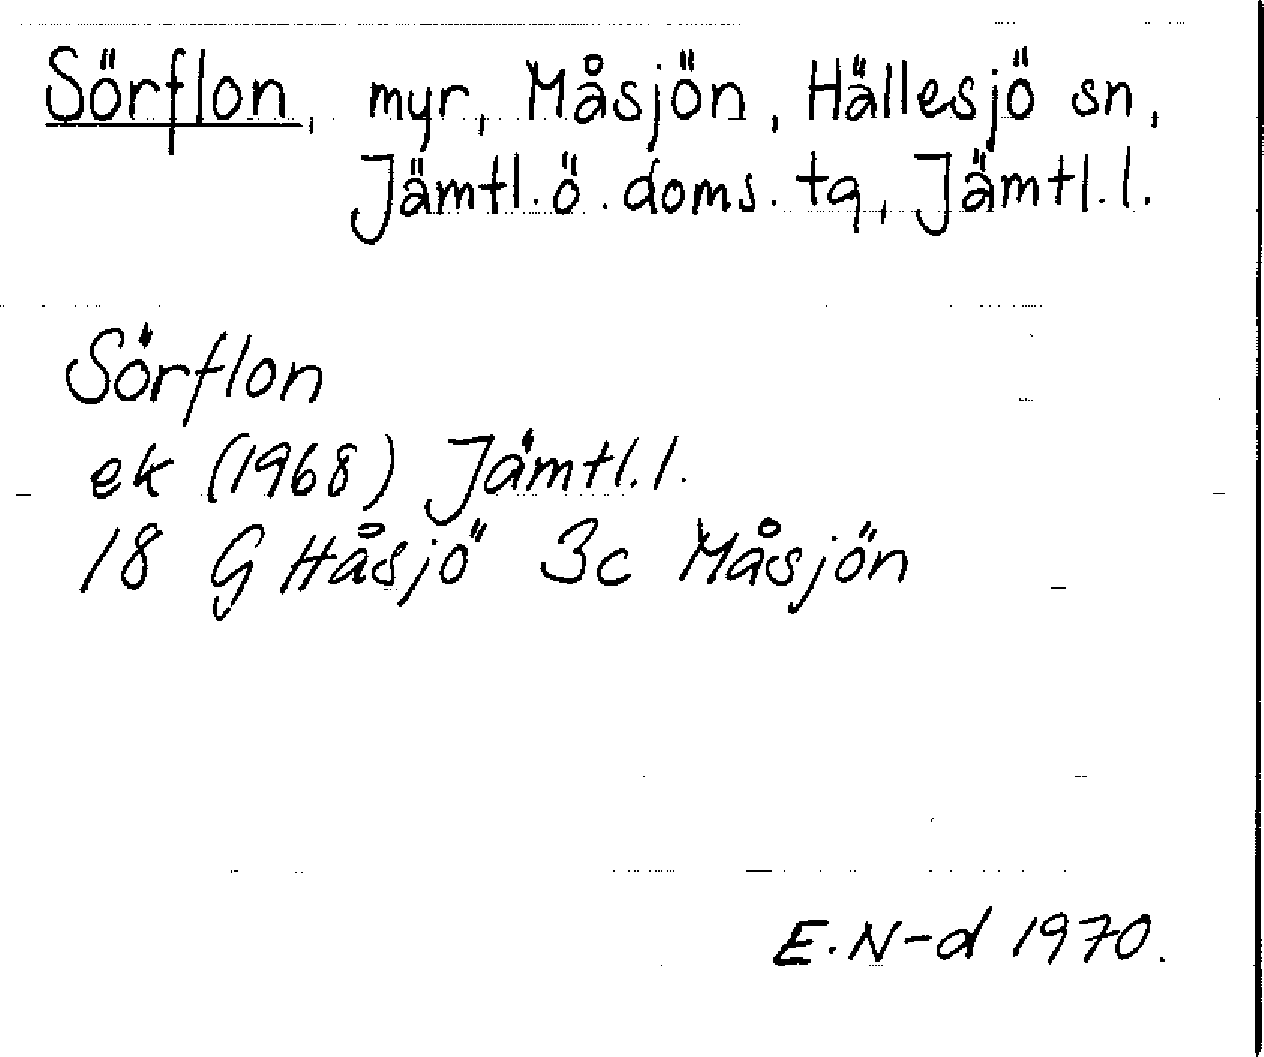 Sörflon, myr, Måsjön, Hällesjö sn,
Jämtl. ö. doms. tg, Jämtl. l.
Sörflon
ek (1968) Jämtl. l.
18 G Håsjö 3c Måsjön
E. N-d 1970.